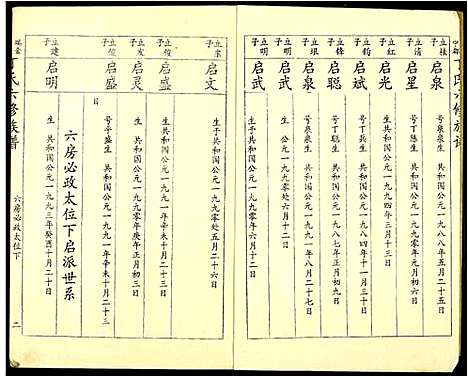 丁氏六修族谱
立桂子
启泉
号泉泉生 共和国公元一九八八年五月二十五日
立清子
启星
号丁星生 共和国公元一九九一年五月十二日
立光子
启光
生 共和国公元一九九四年三月十三日
立斌子
启斌
号丁兵生 共和国公元一九八四年十一月三日
立锋子
启聪
号丁聪生 共和国公元一九八七年正月初三日
立银子
启泉
号泉泉生 共和国公元一九九一年八月二十七日
立明子
启武
生 公元一九九零年六月二十一日
启武
生于共和国公元一九九零年六月二十一日
立东子
启文
生于共和国公元一九九零年五月二十六日
启盛
生 共和国公元一九九一年辛未十月二十三日
立发子
启灵
生 共和国公元一九九零年庚午正月初三日
启盛
号平盛生 共和国公元一九九一年辛未十月二十三日
六房必政太位下启派世系
立建子
启明
生 共和国公元一九九三年癸酉十月二十日
瑞金
丁氏六修族谱
六房必政太位下
二